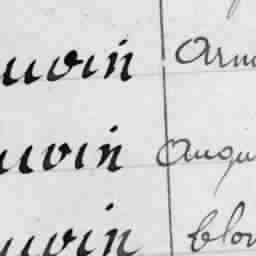 uvin Arm
uvin Augu
uvin blov